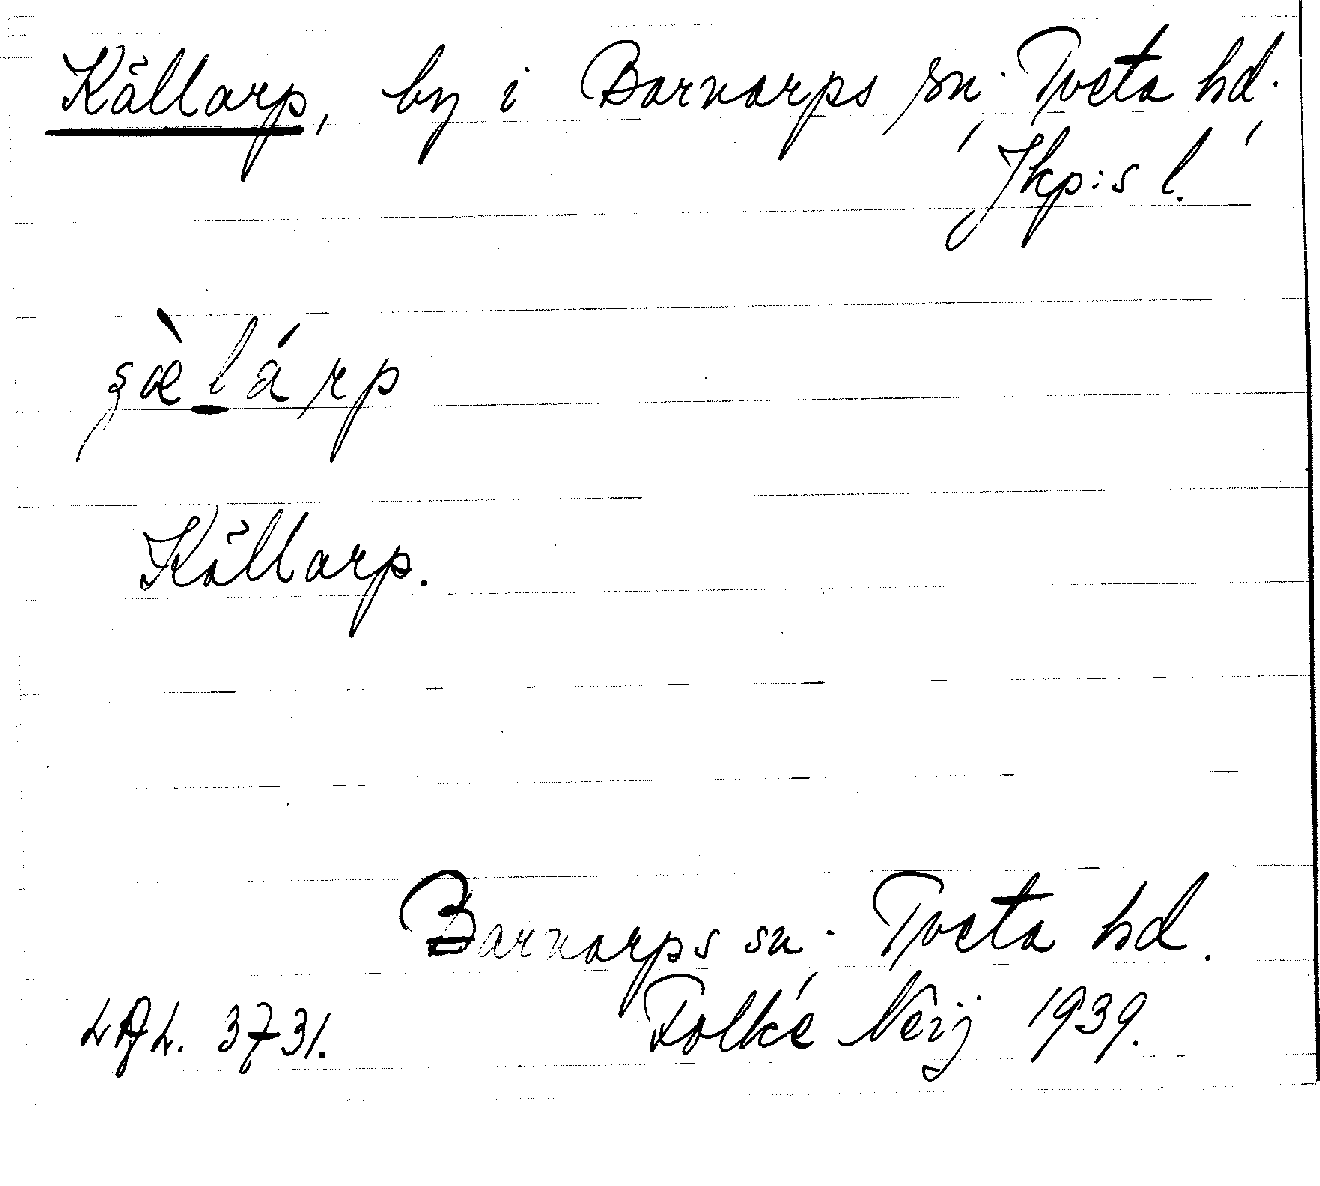 Källarp, by i Barnarps sn, Tveta hd,
Jkp:s l.
Källarp.
Barnarps sn, Tveta hd.
Folke Neij 1939.
3731.